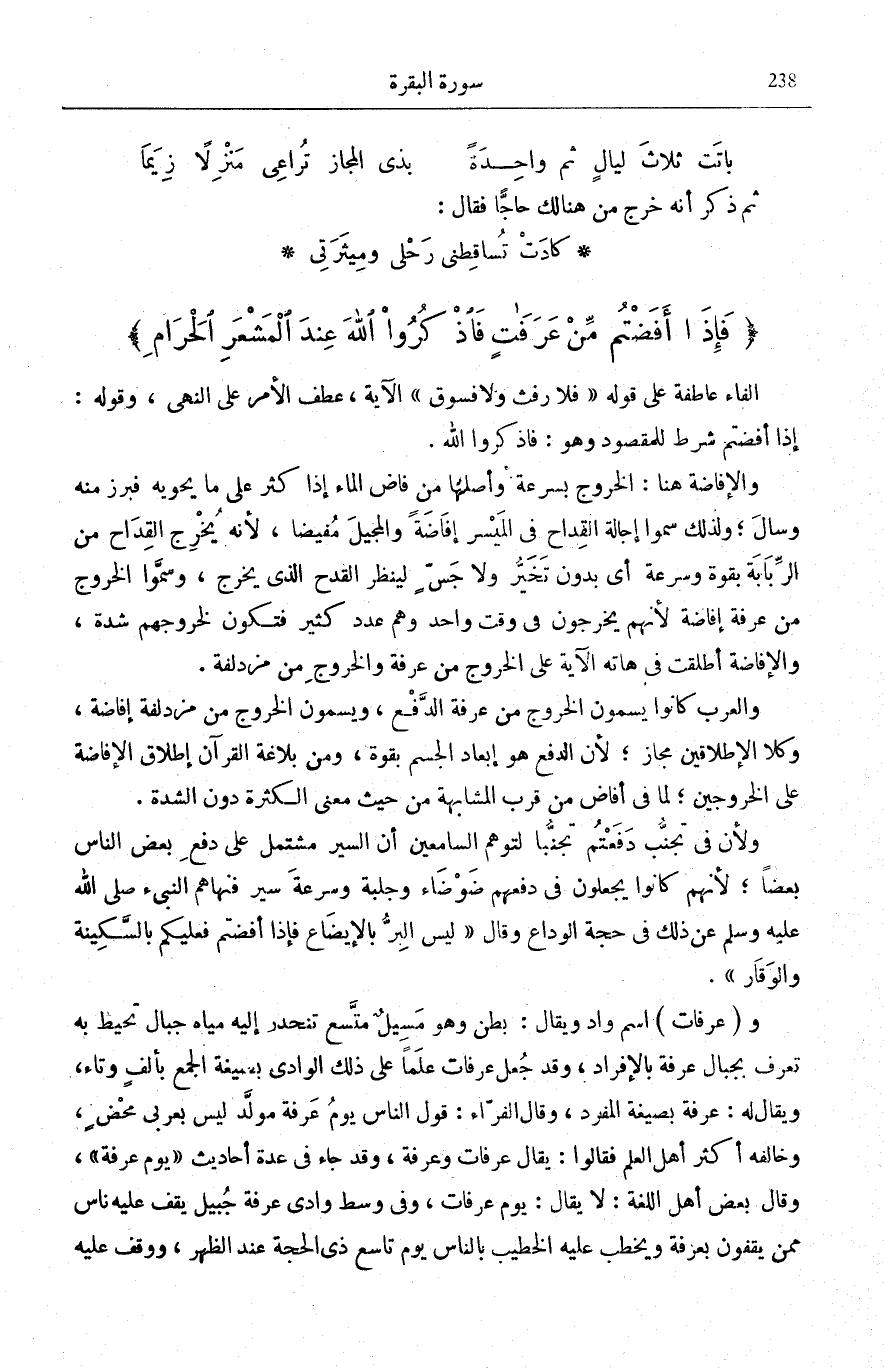 238
سورة البقرة
باتَت ثلاثَ ليالٍ ثم واحِـــدَةً بذى المجاز تُراعِى مَنْزِلًا زِيَمَا
ثم ذكر أنه خرج من هنالك حاجًّا فقال :
* كادَتْ تُساقِطنى رَحْلى ومِيثَرَتِى *
﴿ فَإِذَا أَفَضْتُم مِّنْ عَرَفَٰتٍ فَٱذْكُرُواْ ٱللَّهَ عِندَ ٱلْمَشْعَرِ ٱلْحَرَامِ ﴾
الفاء عاطفة على قوله « فلا رفث ولا فسوق » الآية ، عطف الأمر على النهى ، وقوله :
إذا أفضتم شرط للمقصود وهو : فاذكروا الله .
والإفاضة هنا : الخروج بسرعة وأصلها من فاض الماء إذا كثر على ما يحويه فبرز منه
وسالَ ؛ ولذلك سموا إجالة القِداح فى المَيْسر إفَاضَةً والمجيلَ مُفيضا ، لأنه يُخْرِج القِدَاح من
الرِّبَابَة بقوة وسرعة أى بدون تَخَيُّر ولا جَسٍّ لينظر القدح الذى يخرج ، وسمَّوا الخروج
من عرفة إفاضة لأنهم يخرجون فى وقت واحد وهم عدد كثير فتـكون لخروجهم شدة ،
والإفاضة أطلقت فى هاته الآية على الخروج من عرفة والخروج من مزدلفة .
والعرب كانوا يسمون الخروج من عرفة الدَّفْـع ، ويسمون الخروج من مزدلفة إفاضة ،
وكلا الإطلاقين مجاز ؛ لأن الدفع هو إبعاد الجسم بقوة ، ومن بلاغة القرآن إطلاق الإفاضة
على الخروجين ؛ لما فى أفاض من قرب المشابهة من حيث معنى الـكثرة دون الشدة .
ولأن فى تجنُّب دَفَعْتُم تجنُّبا لتوهم السامعين أن السير مشتمل على دفعِ بعض الناس
بعضاً ؛ لأنهم كانوا يجعلون فى دفعهم ضَوْضَاء وجلبة وسرعةَ سير فنهاهم النبىء صلى الله
عليه وسلم عن ذلك فى حجة الوداع وقال « ليس البِرُّ بالإيضَاع فإذا أفضتم فعليكم بالسَّـكِينة
والوَقَار » .
و ( عرفات ) اسم واد ويقال : بطن وهو مَسِيلٌ متَّسع تنحدر إليه مياه جبال تحيط به
تعرف بجبال عرفة بالإفراد ، وقد جُعل عرفات علَماً على ذلك الوادى بصيغة الجمع بألفٍ وتاء،
ويقال له : عرفة بصيغة المفرد ، وقال الفرّاء : قول الناس يومُ عَرفة مولَّد ليس بعربى محْضٍ ،
وخالفه أكثر أهل العلم فقالوا : يقال عرفات وعرفة ، وقد جاء فى عدة أحاديث «يوم عرفة» ،
وقال بعض أهل اللغة : لا يقال : يوم عرفات ، وفى وسط وادى عرفة جُبيل يقف عليه ناس
ممن يقفون بعرفة ويخطب عليه الخطيب بالناس يوم تاسع ذى الحجة عند الظهر ، ووقف عليه